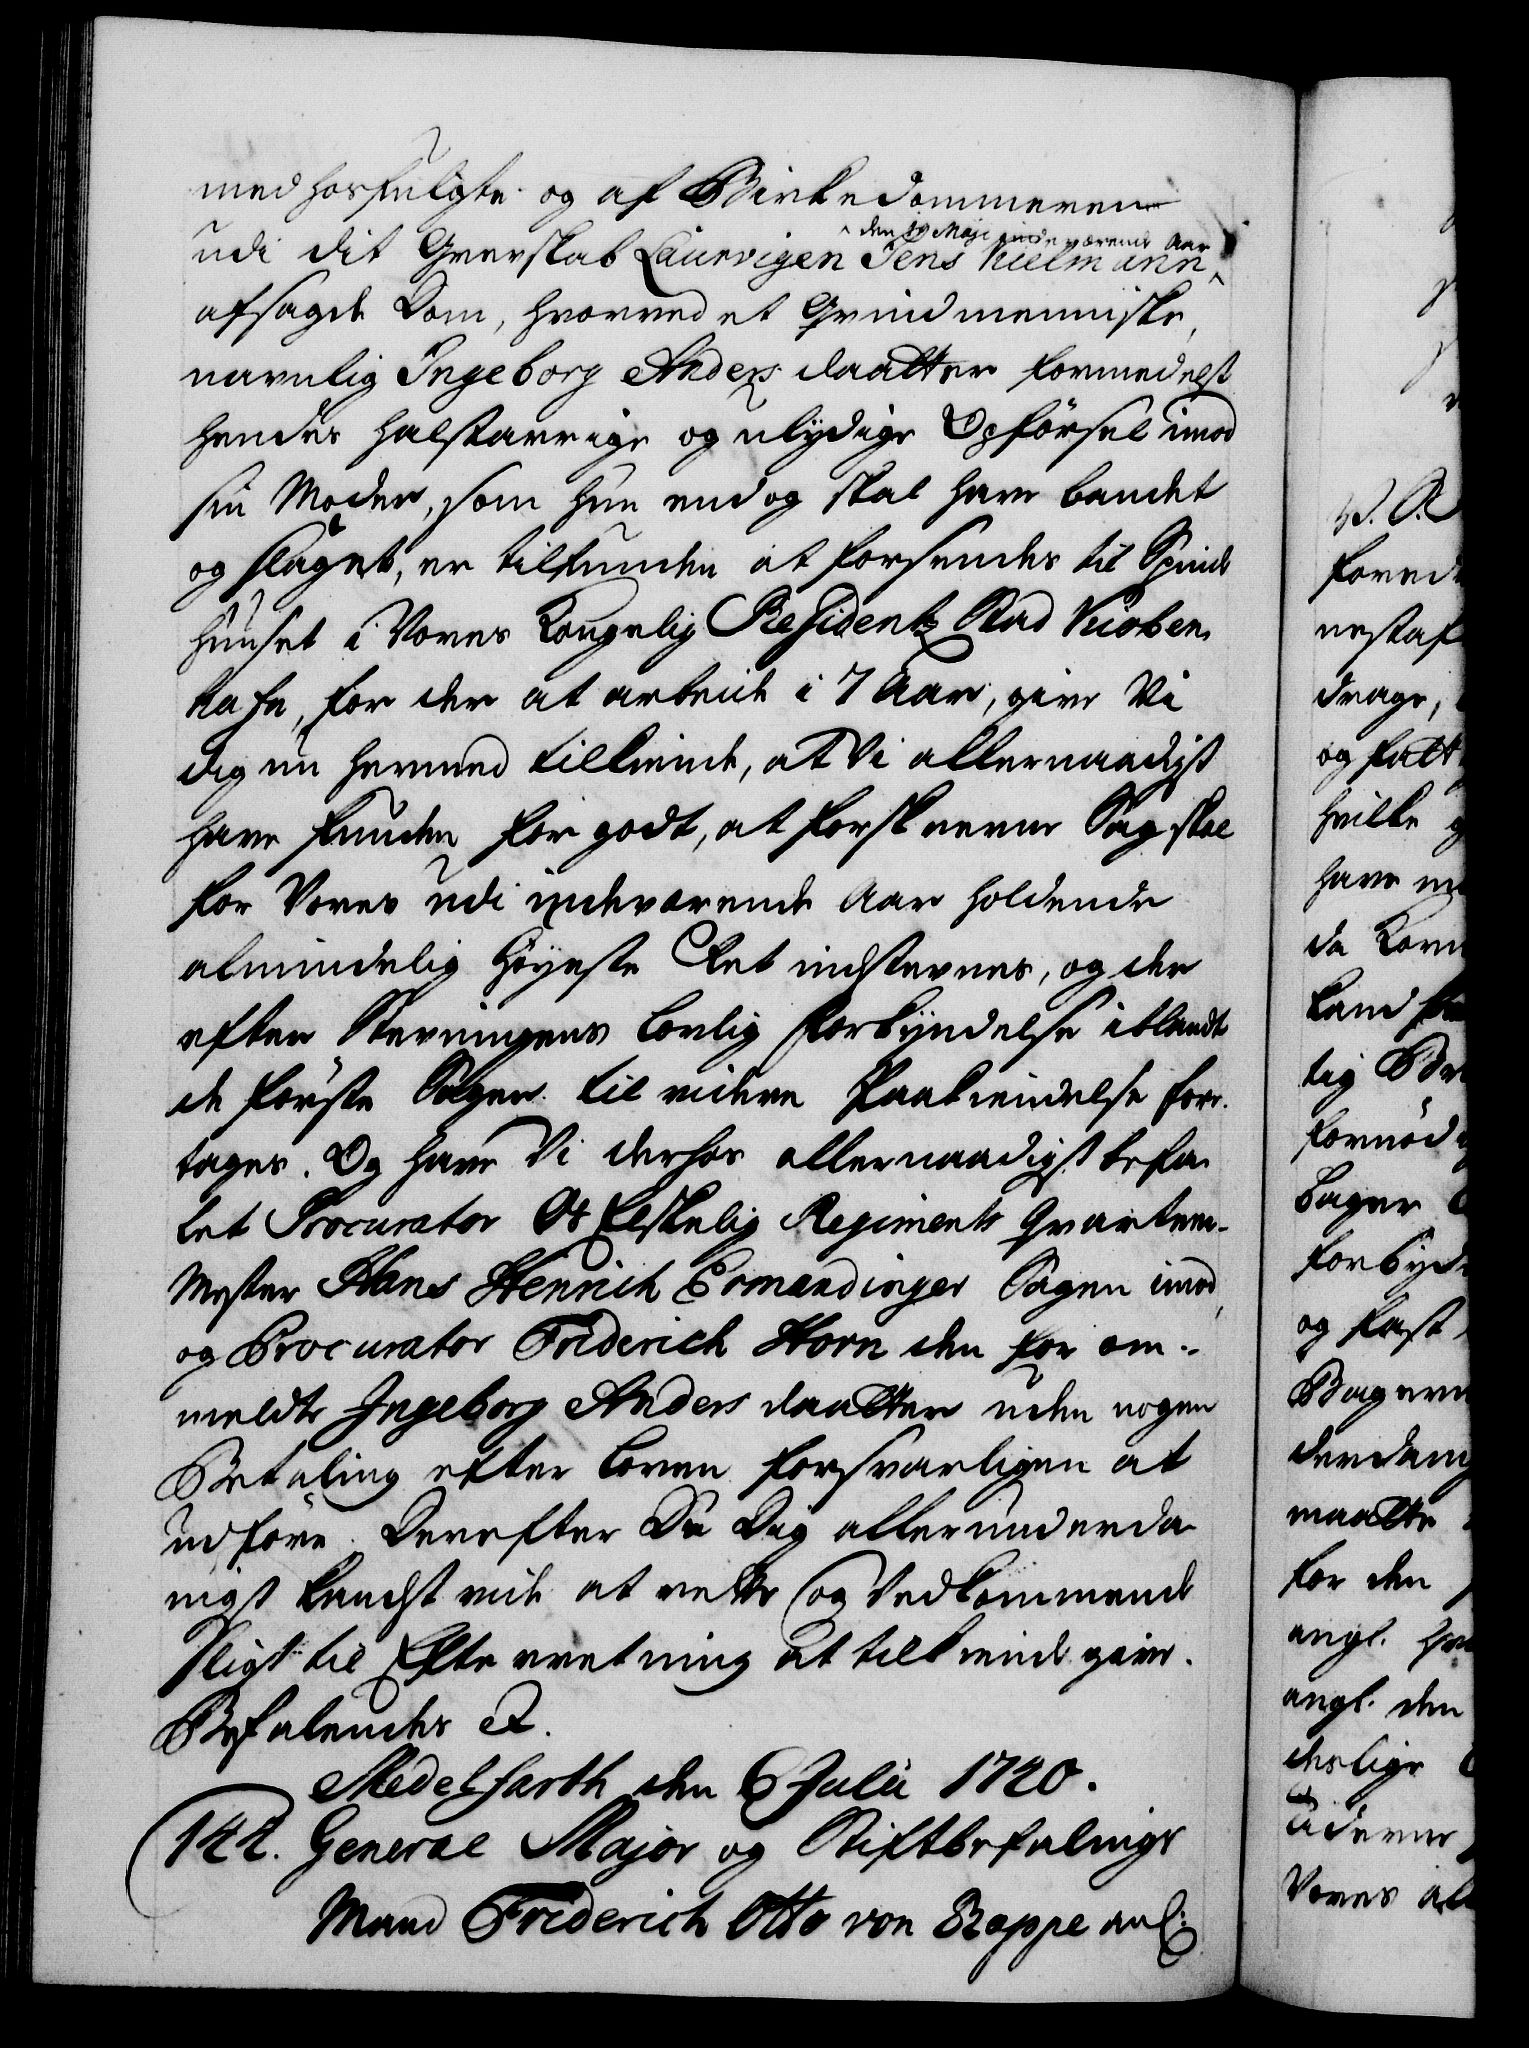 medhosfuligte og af Birkedommeren
udi dit Grevskab Laurvigen Jens Kielmann ^den 10 Maji indeværende Aar^
afsagde Dom, hvorved et Qvindmenniske,
navnlig Ingeborg Anders daatter formedelst
hendes halstarrige og ulydige Opförsel imod
sin Moder, som hun endog skal have bandet
og slaget, er tilfunden at forsendes til Spinde
Huuset i Vores Kongelig Residentz Stad Kioben,
hafn, for der at arbeide i 7 Aar, give Vi
dig nu hermed tilkiende, at Vi allernaadigst
have funden for godt, at forskrevne Sag skal
for Vores udi indeværende Aar holdende
almindelig Höyeste Ret indstevnes, og der
efter Stevningens lovlig Forkyndelse iblandt
de förste Sager til videre Paakiendelse fore.
tages. Og have Vi derhos allernaadigst befa
let Procurator Os Elskelig Regiments Qvarteer-
Mester Hans Henrich Ermandinger Sagen imod,
og Procurator Friderich Horn den for om-
meldte Ingeborg Anders daatter uden nogen
Betaling efter Loven forsvarligen at
udföre. Derefter Du Dig allerunderda
nigst kandst vide at rette og Vedkommende
Sligt til Efterretning at tilkiende give.
Befalendes etc.
Medelfarth den 6 Julii 1740.
122. General Major og Stiftbefalings
Mand Friderich Otto von Rappe anl: